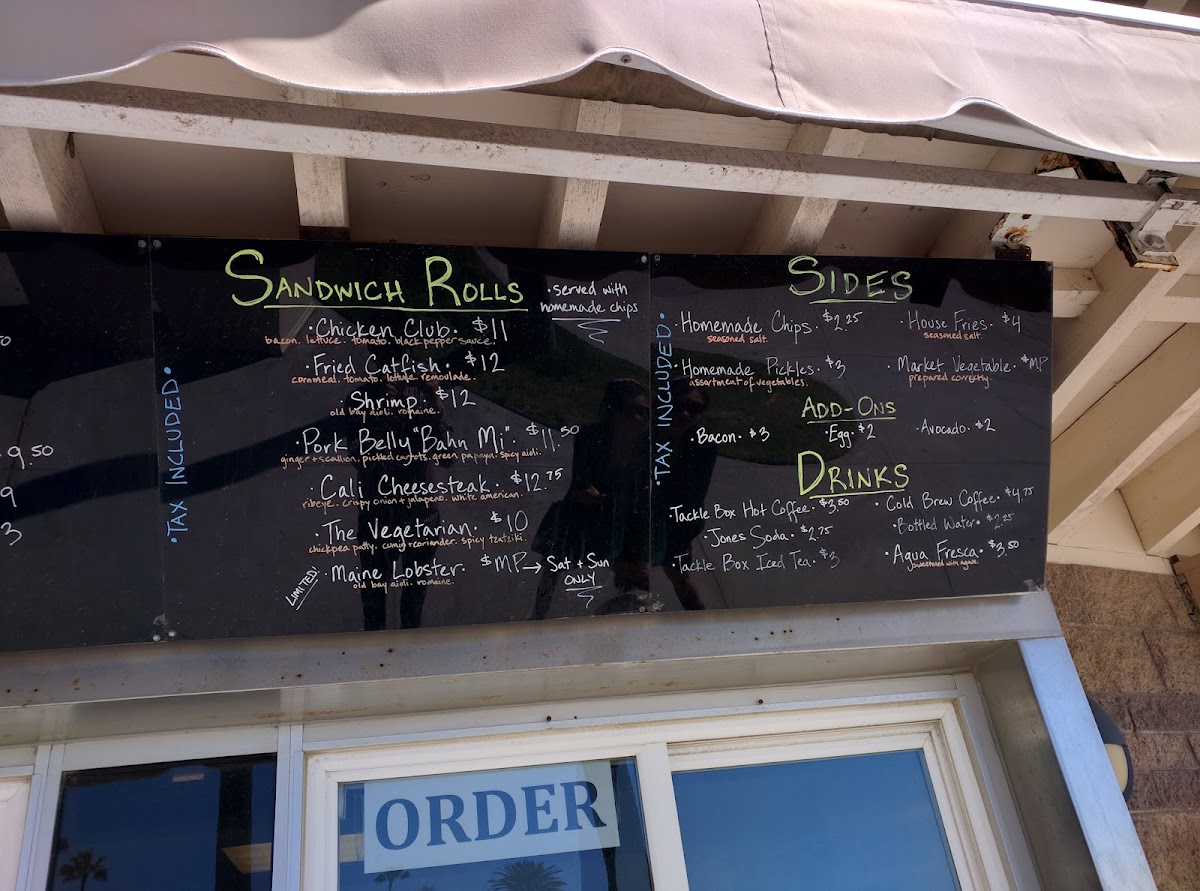 9.50
9
3
·TAX INCLUDED·
SANDWICH ROLLS
·served with
homemade chips
·Chicken Club· $11
bacon. lettuce. tomato. black pepper sauce.
·Fried Catfish· $12
cornmeal. tomato. lettuce. remoulade.
Shrimp· $12
old bay aioli. romaine.
·Pork Belly "Bahn Mi"· $11.50
ginger + scallion. pickled carrots. green papaya. spicy aioli.
·Cali Cheesesteak· $12.75
ribeye. crispy onion + jalapeno. white american.
·The Vegetarian· $10
chickpea patty. cumin + coriander. spicy tzatziki.
LIMITED!
·Maine Lobster· $MP → Sat + Sun
ONLY
old bay aioli. romaine.
·TAX INCLUDED·
SIDES
·Homemade Chips· $2.25
seasoned salt.
·House Fries· $4
seasoned salt.
·Homemade Pickles· $3
assortment of vegetables.
·Market Vegetable· $MP
prepared correctly.
ADD-ONS
·Bacon· $3
·Egg· $2
·Avocado· $2
DRINKS
·Tackle Box Hot Coffee· $3.50
·Cold Brew Coffee· $4.75
·Jones Soda· $2.75
·Bottled Water· $2.25
·Tackle Box Iced Tea· $3
·Agua Fresca· $3.50
sweetened with agave.
ORDER